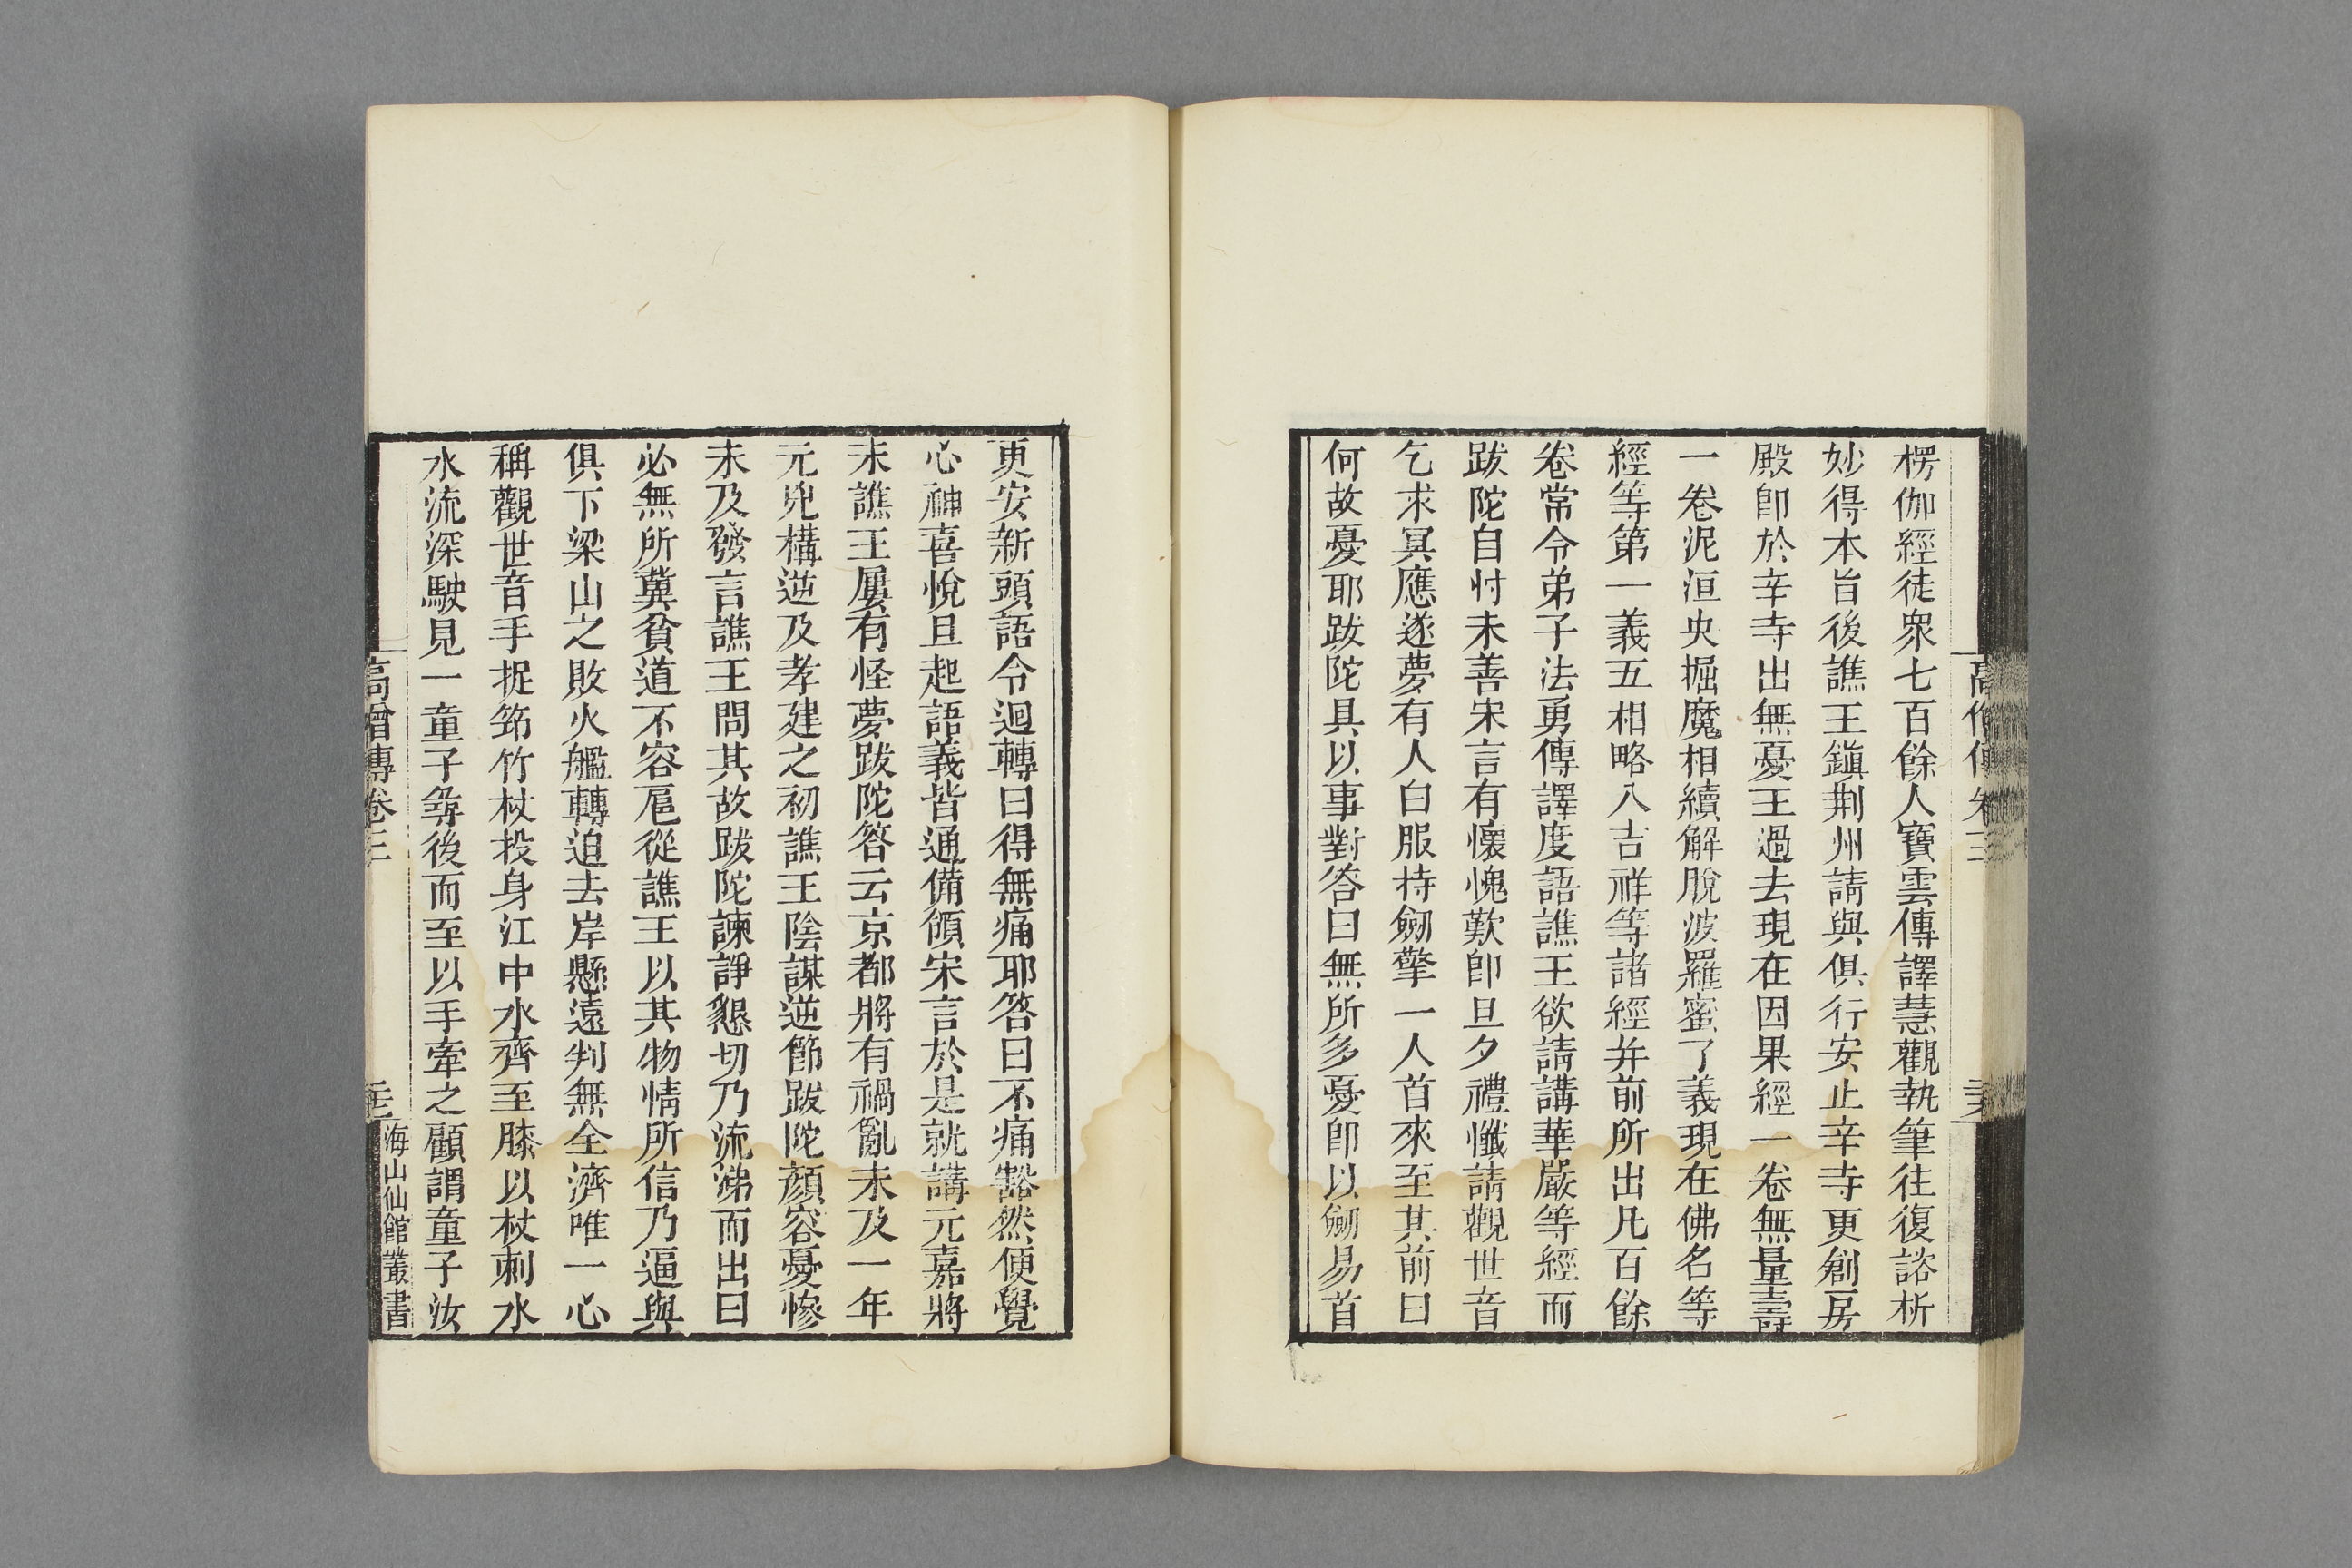 楞伽經徒衆七百餘人寶雲傳譯慧觀執筆往復諮析
妙得本旨後譙王鎮荆州請與俱行安止辛寺更創房
殿卽於辛寺出無憂王過去現在因果經一卷無量壽
一卷泥洹央掘魔相續解脫波羅蜜了義現在佛名等
經等第一義五相略八吉祥等諸經并前所出凡百餘
卷常令弟子法勇傳譯度語譙王欲請講華嚴等經而
跋陀自忖未善宋言有懷愧歎卽旦夕禮懺請觀世音
乞求冥應遂夢有人白服持劒擎一人首來至其前曰
何故憂耶跋陀具以事對答曰無所多憂卽以劒易首
更安新頭語令迴轉曰得無痛耶答曰不痛豁然便覺
心神喜悅旦起語義皆通備領宋言於是就講元嘉將
末譙王屢有怪夢跋陀答云京都將有禍亂未及一年
元兇構逆及孝建之初譙王陰謀逆節跋陀顏容憂慘
未及發言譙王問其故跋陀諫諍懇切乃流涕而出曰
必無所冀貧道不容扈從譙王以其物情所信乃逼與
俱下梁山之敗火艦轉迫去岸懸遠判無全濟唯一心
稱觀世音手捉笻竹杖投身江中水齊至膝以杖刺水
水流深駛見一童子尋後而至以手牽之顧謂童子汝
高僧傳卷三
海山仙館叢書